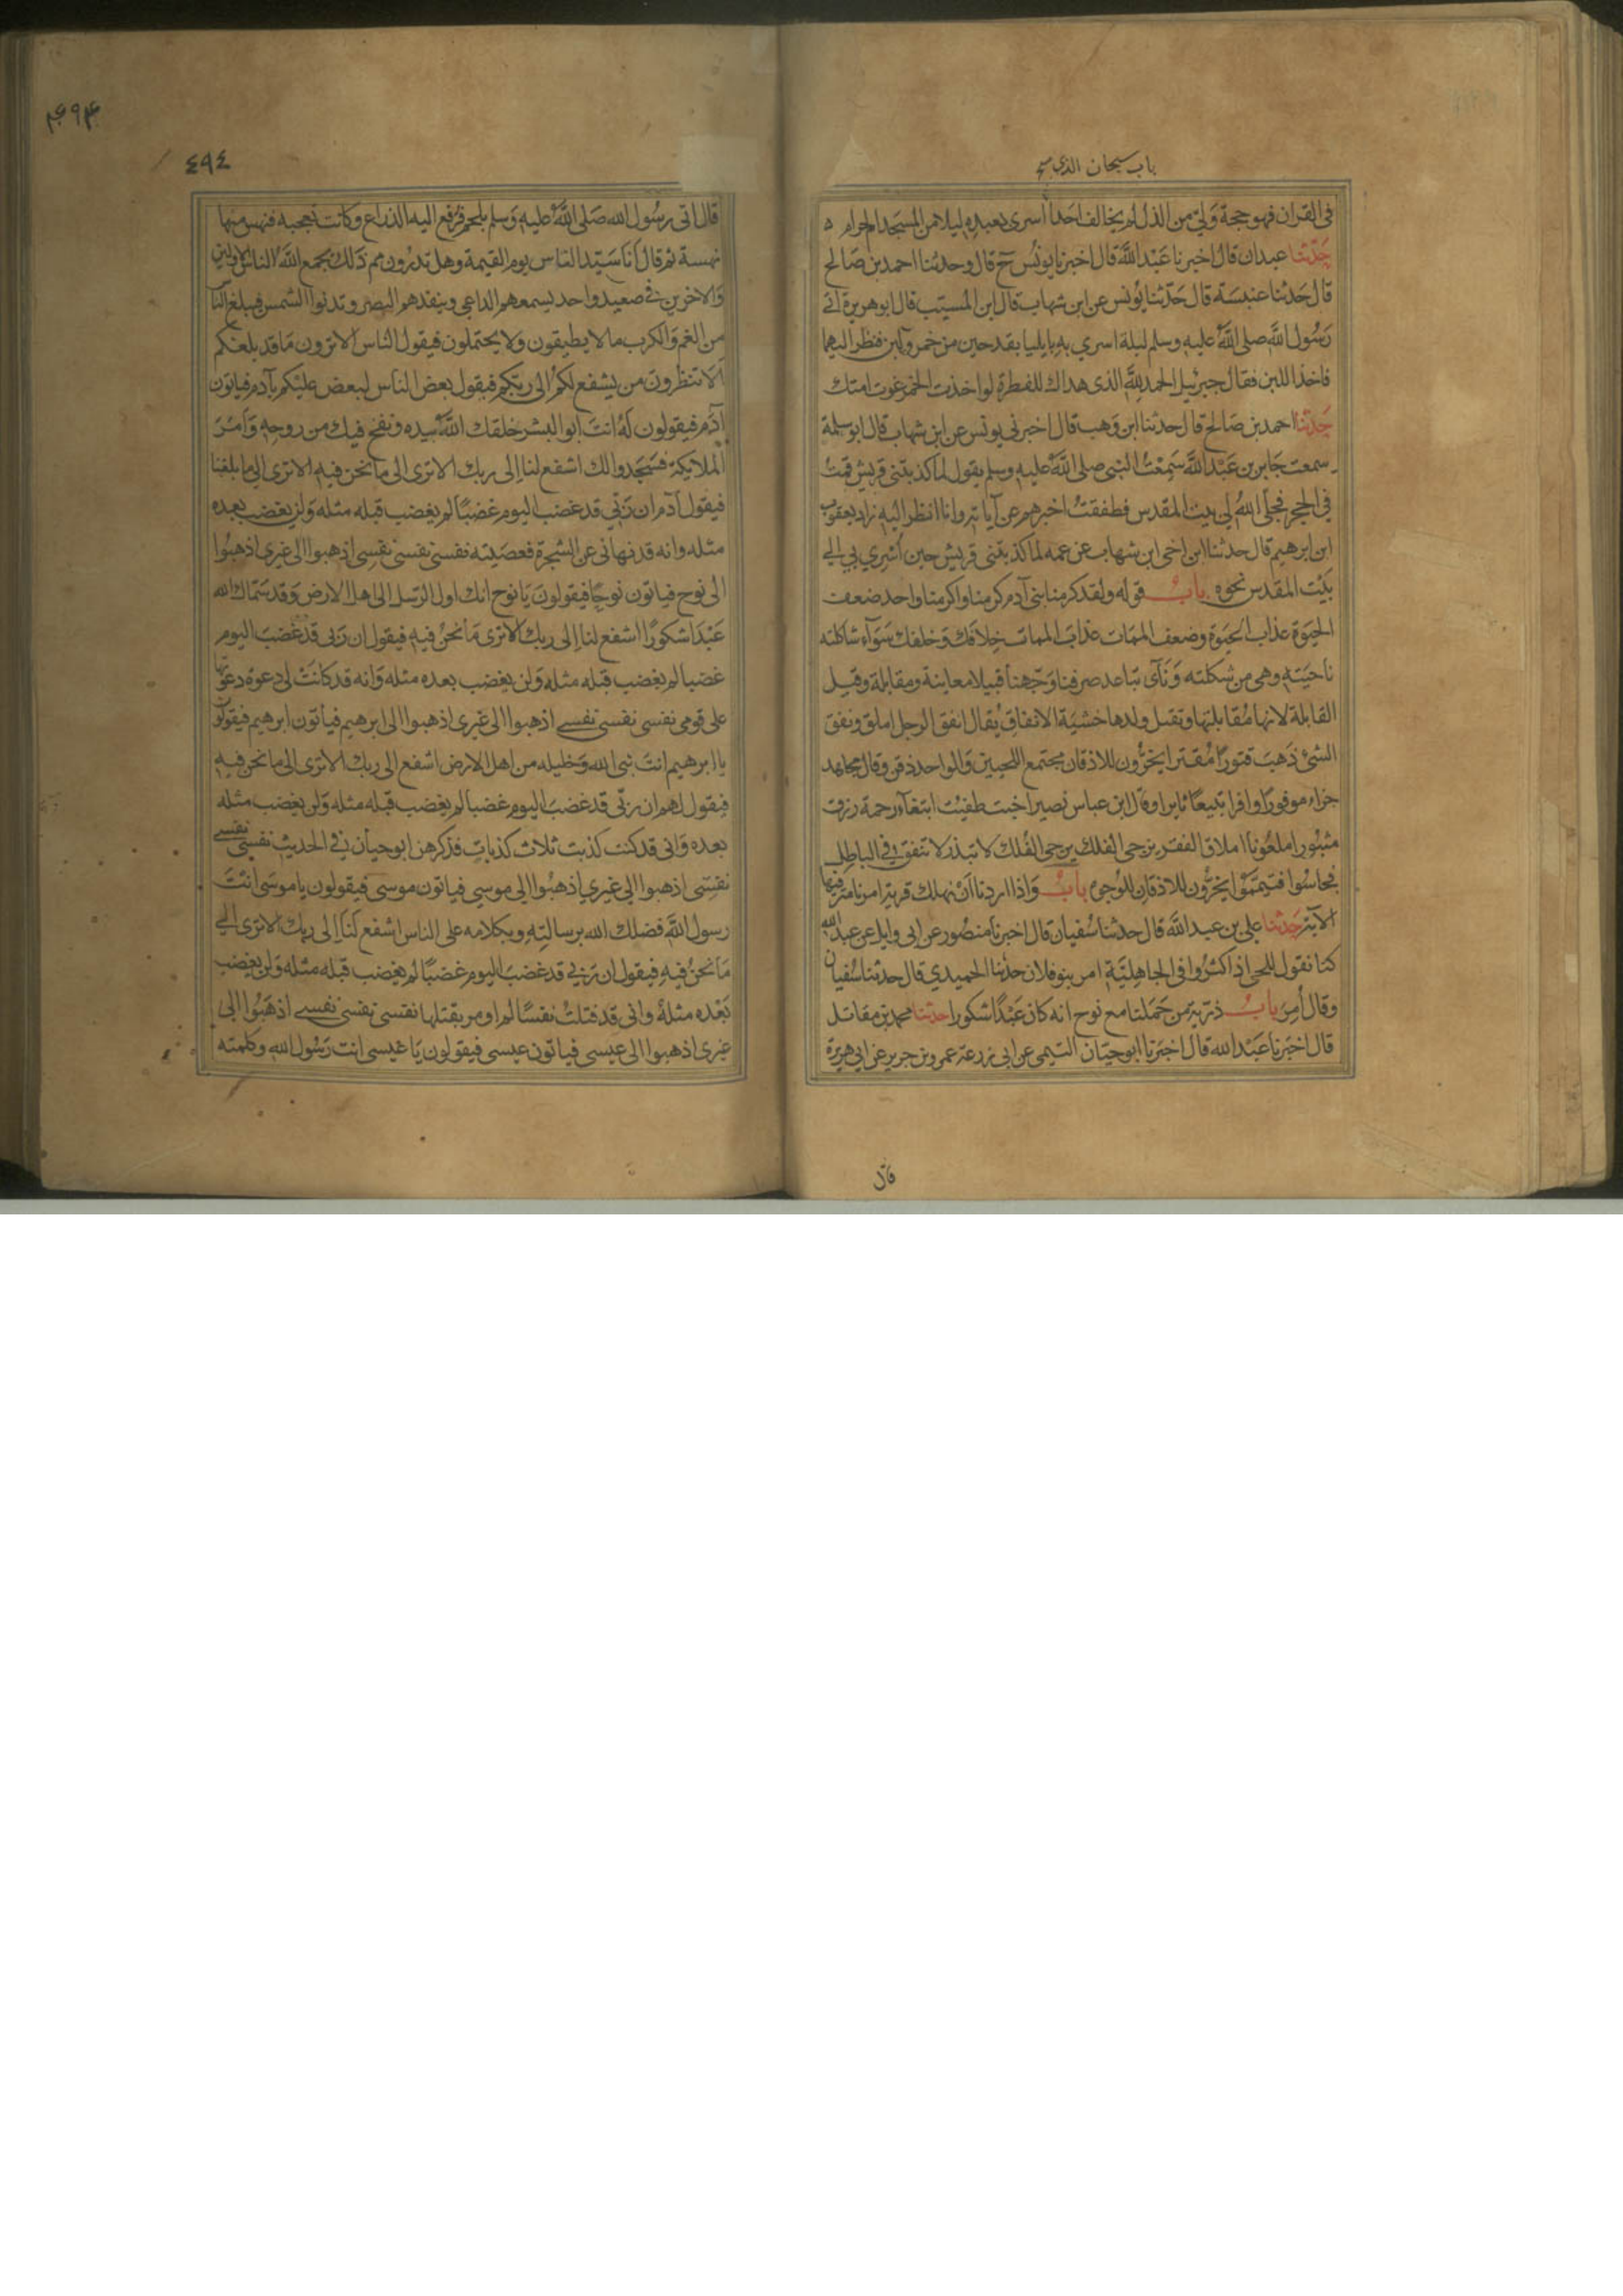 باب سبحان الذي
في القران فهو حجة وَليّ من الذل لم يخالف احَداً أسرى بعبدهِ ليلا من المسجد الحرام ه
حَدّثنا عبدان قال اخبرنا عَبْد اللَّه قال اخبرنا يونُس ح قال وحدثنا احمد بن صَالح
قال حَدثنا عنبسَة قال حَدّثنا يُونس عن ابن شهاب قال ابن المسيّب قال ابو هريرة اتى
رَسُول اللَّه صلى اللَّه عليهِ وسلم ليلة اسري بهِ بايليا بقدحين من خمر ولبن فنظر اليهما
فاخذ اللبن فقال جبرئيل الحمد للَّهِ الذى هداك للفطرة لو اخذت الخمر غوت امتك
حَدّثنا احمد بن صَالح قال حدثنا ابن وَهب قال اخبرني يونس عن ابن شهاب قال ابو سلمة
سمعت جَابر بن عَبْد اللَّه سَمِعْتُ النبي صلى اللَّه عليهِ وسلم يقول لما كذبتنى قريش قمتُ
في الحجر فجلى اللهُ لي بيت المقدس فطفقتُ اخبرهم عن آياته وانا انظر اليهِ زاد يعقوب
ابن ابرهيم قال حدثنا ابن اخي ابن شهاب عن عمه لما كذبتنى قريش حين اُسْري بي الي
بَيْت المقدس نحوه بابُ قوله ولقد كرمنا بني آدم كرمنا واكرمنا واحد ضعف
الحيوة عذاب الحيَوة وضعف الممَات عذابَ الممات خِلافك وَخلفك سَوَآء شاكلته
ناحيَتهِ وهي من شكلته وَنَآى تباعد صرفنا وَجّهنا قبيلا معاينة ومقابلة وقيل
القابلة لانها مُقابلتها وتقبل ولدها خشيَة الانفاق يُقال انفق الرجل املق ونفق
الشئ ذَهبَ قتورًا مُقترا يخرُّون للاذقان مجتمع اللحيين وَالواحد ذقن وقال مجاهد
جزاء موفورًا وافرا تبيعًا ثايرا وقال ابن عباس نصيرا خبت طفئت ابتغآء رحمة رزق
مثبُورا ملعُونا املاق الفقر يزجى الفلك يرجى الفُلك لا تبذر لا تنفق في الباطل
فجاسُوا فتيمّمُوا يخرُّون للاذقان للوُجوه بابُ وَاذا اردنا اَنْ نهلك قرية امرنا مترفيها
الآية حَدّثنا علي بن عبد اللَّه قال حدثنا سُفيان قال اخبرنا منصُور عن ابى وايل عن عبد الله
كنا نقول للحي اذا كثرُوا في الجاهليَّة امر بنو فلان حدثنا الحميدي قال حدثنا سُفيان
وقال اَمِرَ بابُ ذرية من حَمَلنا مع نوح انه كان عَبْدًا شكورا حدثنا محمد بن مقاتل
قال اخبَرنا عَبْد الله قال اخبَرنا ابو حيّان التيمي عن ابى زرعة عمرو بن جرير عن ابي هريرة
قال
٤٩٤
٤٩٤
قال اتى رسُول الله صَلى اللَّه عليهِ وَسلم بلحم فرُفع اليه الذراع وكانت تعجبه فنهس منها
نهسة ثم قال اَنا سَيّد الناس يوم القيمة وهل تدرُون مم ذلك يجمع اللَّه الناس الاولين
وَالاخرين في صعيد واحد يسمعهم الداعي وينفدهم البصر وتدنوا الشمس فيبلغ الناس
من الغم وَالكرب ما لا يطيقون وَلا يحتملون فيقول الناس الا ترون مَا قد بلغكم
اَلا تنظرون من يشفع لكمْ الى ربّكم فيقول بعض الناس لبعض عليْكم بآدم فياتون
آدَم فيقولون لهُ انتَ ابو البشر خلقك اللَّه بيده ونفخ فيك من روحهِ وَاَمَرَ
الملائكة فسَجَدوا لك اشفع لنا اِلى ربك الا ترى الى ما نحن فيهِ الا ترى الى ما بلغنا
فيقول آدم ان رَبّي قد غضب اليوم غضبًا لم يغضب قبله مثله وَلن يغضب بعده
مثله وانه قد نهانى عن الشجرة فعصَيته نفسى نفسى نفسى اذهبوا الى غيرى اذهبُوا
الى نوح فياتون نوحًا فيقولونَ يَا نوح انك اول الرّسل الى اهل الارض وَقد سَمّاك الله
عَبْدًا شكورًا اشفع لنا اِلى ربك الا ترى مَا نحنُ فيهِ فيقول ان رَبى قد غضب اليوم
غضبا لم يغضب قبله مثله وَلن يغضب بعده مثله وَانه قد كانَتْ لى دعوة دعوتها
على قومى نفسى نفسى نفسي اذهبوا الى غيرى اذهبوا الى ابرهيم فيأتون ابرهيم فيقولون
يا ابرهيم انتَ نبى الله وَخليله من اهل الارض اشفع الى ربك الا ترى الى ما نحن فيهِ
فيقول لهم ان ربّى قد غضبَ اليوم غضبا لم يغضب قبله مثله وَلن يغضب مثله
بعده وَانى قد كنت كذبت ثلاث كذبات فذكرهن ابو حيان في الحديث نفسى نفسى
نفسى اذهبوا الي غيري اذهبُوا الى موسي فياتون موسى فيقولون يا موسَى انتَ
رسول اللَّه فضلك الله برسالتِهِ وبكلامه على الناس اشفع لنَا اِلى ربك الا ترى الي
مَا نحنُ فيهِ فيقول ان رَبي قد غضبَ اليوم غضبًا لم يغضب قبله مثله وَلن يغضب
بَعْده مثلهُ وانى قد قتلتُ نفسًا لم اومر بقتلها نفسى نفسى نفسي اذهَبُوا الى
غيرى اذهبوا الى عيسى فياتون عيسى فيقولون يَا عيسى انت رَسُول الله وكلمته